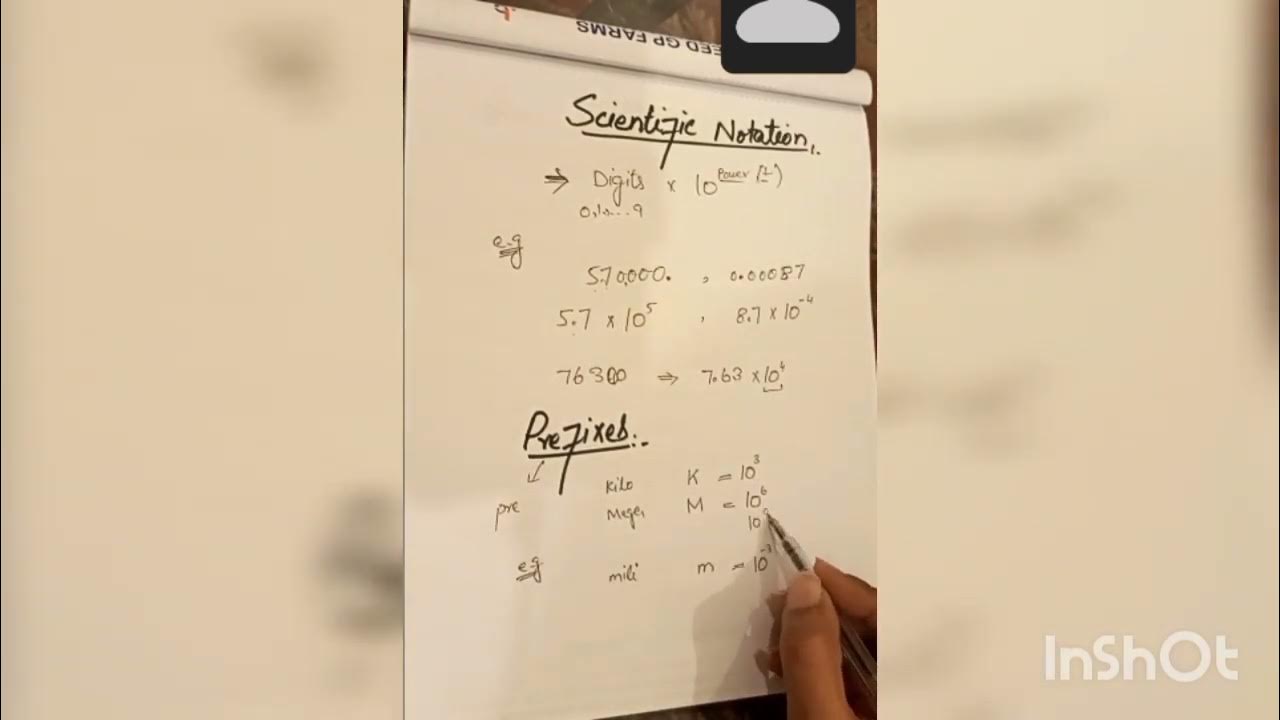 EED GP FARMS
Scientific Notation.
⇒ Digits × 10^Power (±)
0,1,....9
e.g
570,000. , 0.00087
5.7 × 10^5 , 8.7 × 10^-4
76300 ⇒ 7.63 × 10^4
Prefixes:-
kilo K = 10^3
pre Mega M = 10^6
10
e.g mili m = 10^-3
InShOt